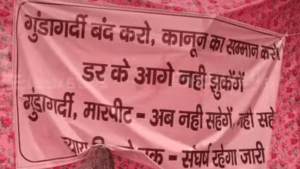 गुंडागर्दी बंद करो, कानून का सम्मान करो
डर के आगे नही झुकेगें
गुंडागर्दी, मारपीट - अब नही सहेगें, नही सहे
तक - संघर्ष रहेगा जारी